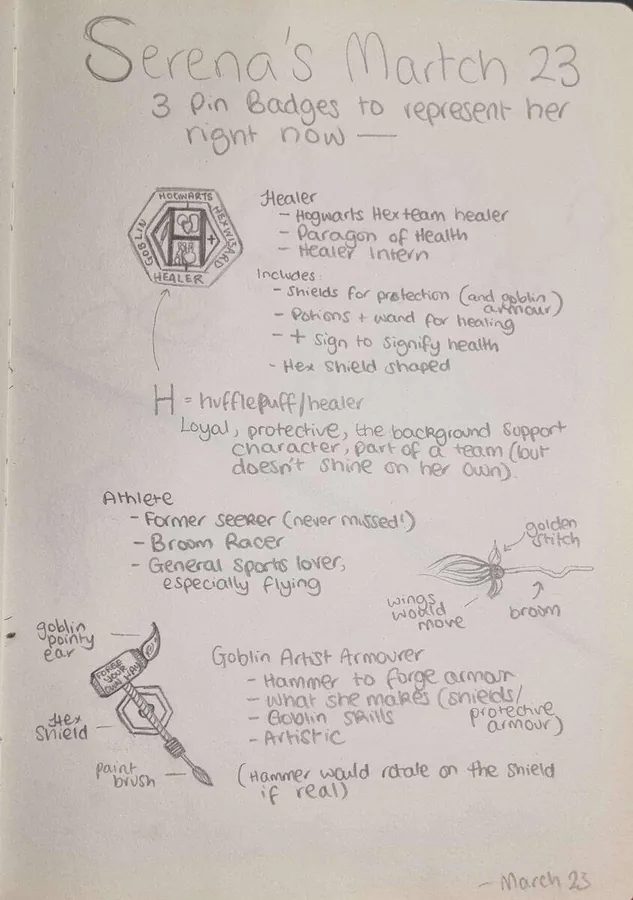 Serena's Martch 23
3 Pin Badges to represent her
right now —
HOGWARTS
HEXWIZARD
GOBLIN
H
+
HEALER
Healer
- Hogwarts Hexteam healer
- Paragon of Health
- Healer Intern
Includes:
- Shields for protection (and goblin
armour)
- Potions + wand for healing
- + sign to signify health
- Hex shield shaped
H = hufflepuff/healer
Loyal, protective, the background support
character, part of a team (but
doesn't shine on her own).
Athlete
- Former seeker (never missed!)
- Broom Racer
- General sports lover,
especially flying
golden
stitch
wings
would
move
broom
goblin
pointy
ear
FORGE
YOUR
OWN WAY
Hex
Shield
paint
brush
Goblin Artist Armourer
- Hammer to forge armour
- What she makes (shields/
protective
armour)
- Goblin skills
- Artistic
(Hammer would rotate on the shield
if real)
- March 23